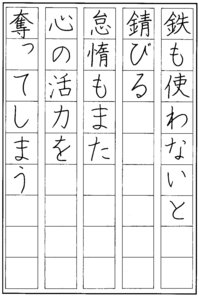 鉄も使わないと
錆びる
怠惰もまた
心の活力を
奪ってしまう